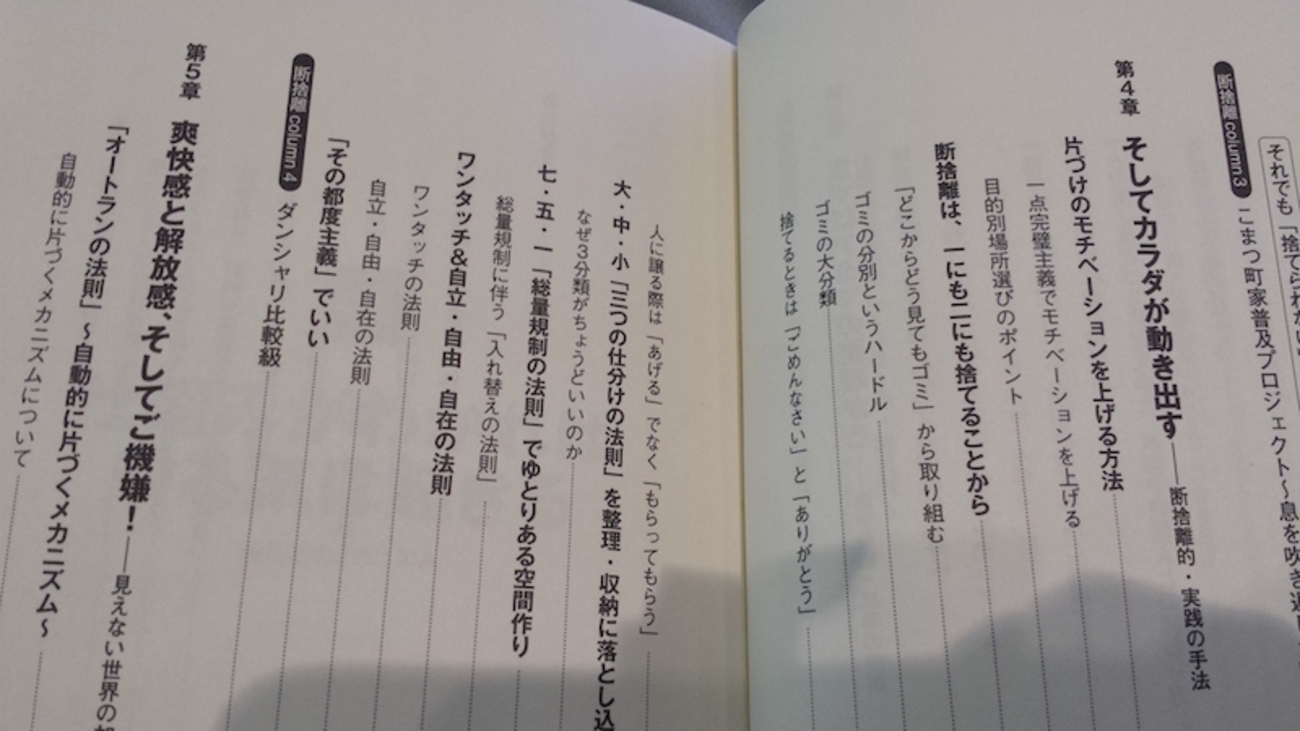 それでも「捨てられない
断捨離 column 3 こまつ町家普及プロジェクト～息を吹き
第4章 そしてカラダが動き出す――断捨離的・実践の手法
片づけのモチベーションを上げる方法
一点完璧主義でモチベーションを上げる
目的別場所選びのポイント
断捨離は、一にも二にも捨てることから
「どこからどう見てもゴミ」から取り組む
ゴミの分別というハードル
ゴミの大分類
捨てるときは「ごめんなさい」と「ありがとう」
人に譲る際は「あげる」でなく「もらってもらう」
大・中・小「三つの仕分けの法則」を整理・収納に落とし込
なぜ3分類がちょうどいいのか
七・五・一「総量規制の法則」でゆとりある空間作り
総量規制に伴う「入れ替えの法則」
ワンタッチ&自立・自由・自在の法則
ワンタッチの法則
自立・自由・自在の法則
「その都度主義」でいい
断捨離 column 4 ダンシャリ比較級
第5章 爽快感と解放感、そしてご機嫌！――見えない世界の
「オートランの法則」～自動的に片づくメカニズム～
自動的に片づくメカニズムについて